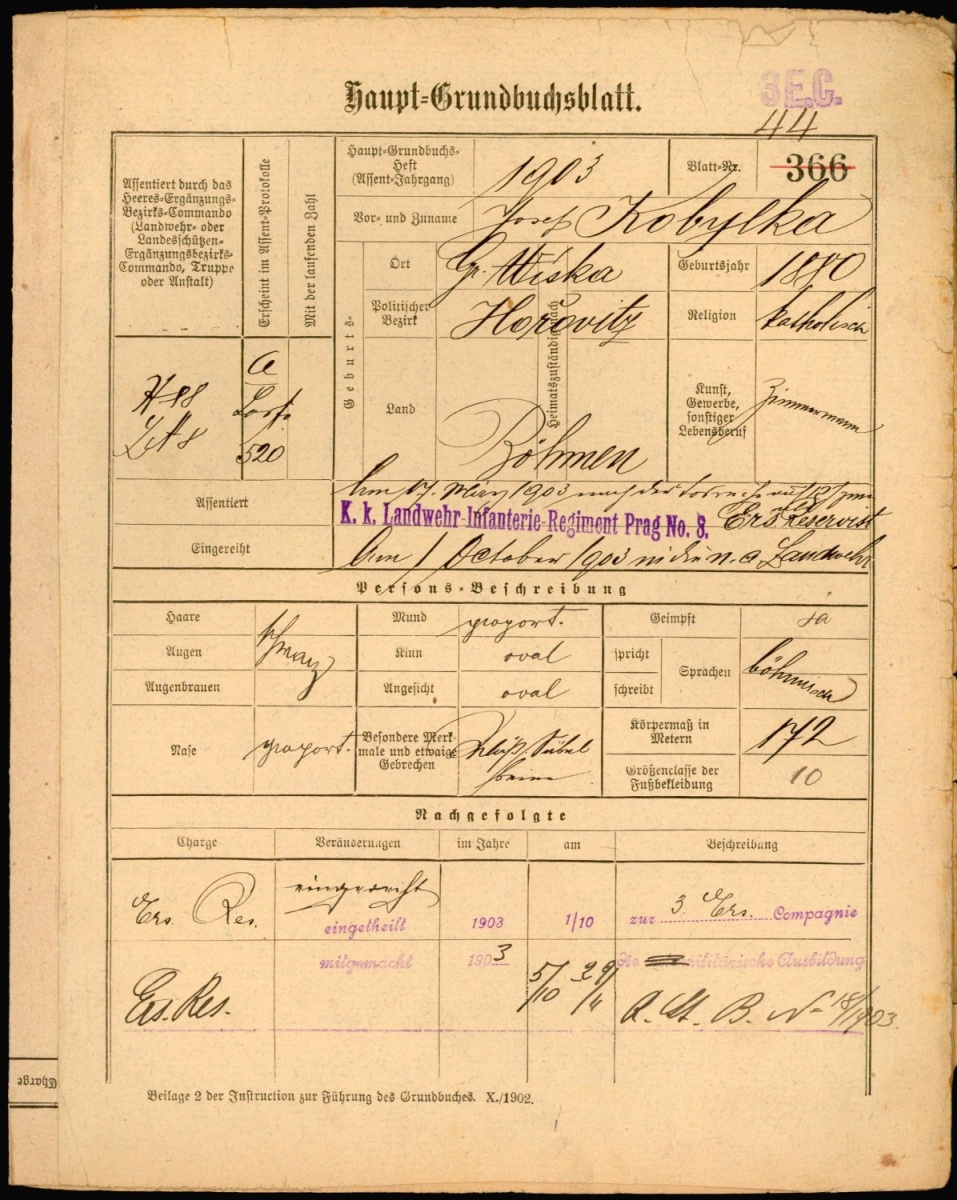 3 E.C.
Haupt=Grundbuchsblatt.
44
Assentiert durch das
Heeres-Ergänzungs-
Bezirks-Commando
(Landwehr- oder
Landesschützen-
Ergänzungsbezirks-
Commando, Truppe
oder Anstalt)
Erscheint im Assent-Protokolle
Mit der laufenden Zahl
Haupt-Grundbuchs-
Heft
(Assent-Jahrgang)
1903
Blatt-Nr.
366
Vor- und Zuname
Josef Kobylka
Geburts-
Ort
Gr. Wiska
Geburtsjahr
1880
Politischer
Bezirk
Hořovitz
Religion
katholisch
Heimatszuständig nach
Land
Böhmen
Kunst,
Gewerbe,
sonstiger
Lebensberuf
Zimmermann
520
Assentiert
Am 17. März 1903 nach der
K. k. Landwehr-Infanterie-Regiment Prag No. 8.
Ers. Reservist
Eingereiht
Am 1 October 1903 in die n. a. Landwehr
Persons=Beschreibung
Haare
Mund
proport.
Geimpft
ja
Augen
schwarz
Kinn
oval
spricht
Sprachen
böhmisch
Augenbrauen
Angesicht
oval
schreibt
Nase
proport.
Besondere Merk-
male und etwaige
Gebrechen
Körpermaß in
Metern
172
Größenclasse der
Fußbekleidung
10
Nachgefolgte
Charge
Veränderungen
im Jahre
am
Beschreibung
Ers. Res.
eingereiht
eingetheilt
1903
1/10
zur 3. Ers. Compagnie
mitgemacht
1903
5/10 29/11
die militärische Ausbildung
Ers. Res.
B. No 18/1903.
Beilage 2 der Instruction zur Führung des Grundbuches. X./1902.
Charge